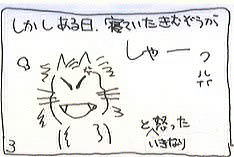 しかしある日、寝ていたきむぞうが
しゃーっ
と怒った
いきなり
3